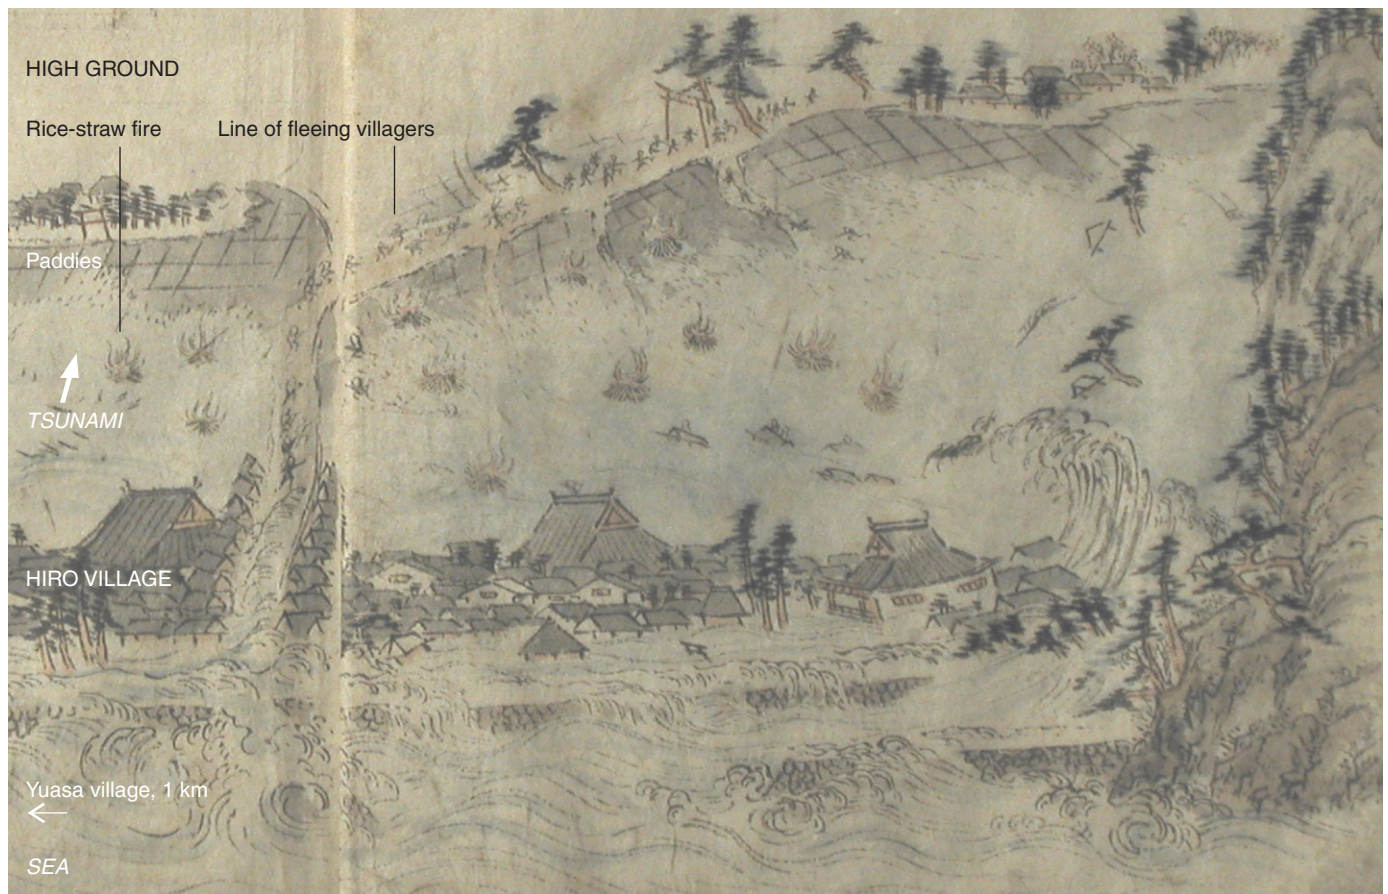 HIGH GROUND
Rice-straw fire
Line of fleeing villagers
Paddies
TSUNAMI
HIRO VILLAGE
Yuasa village, 1 km
SEA